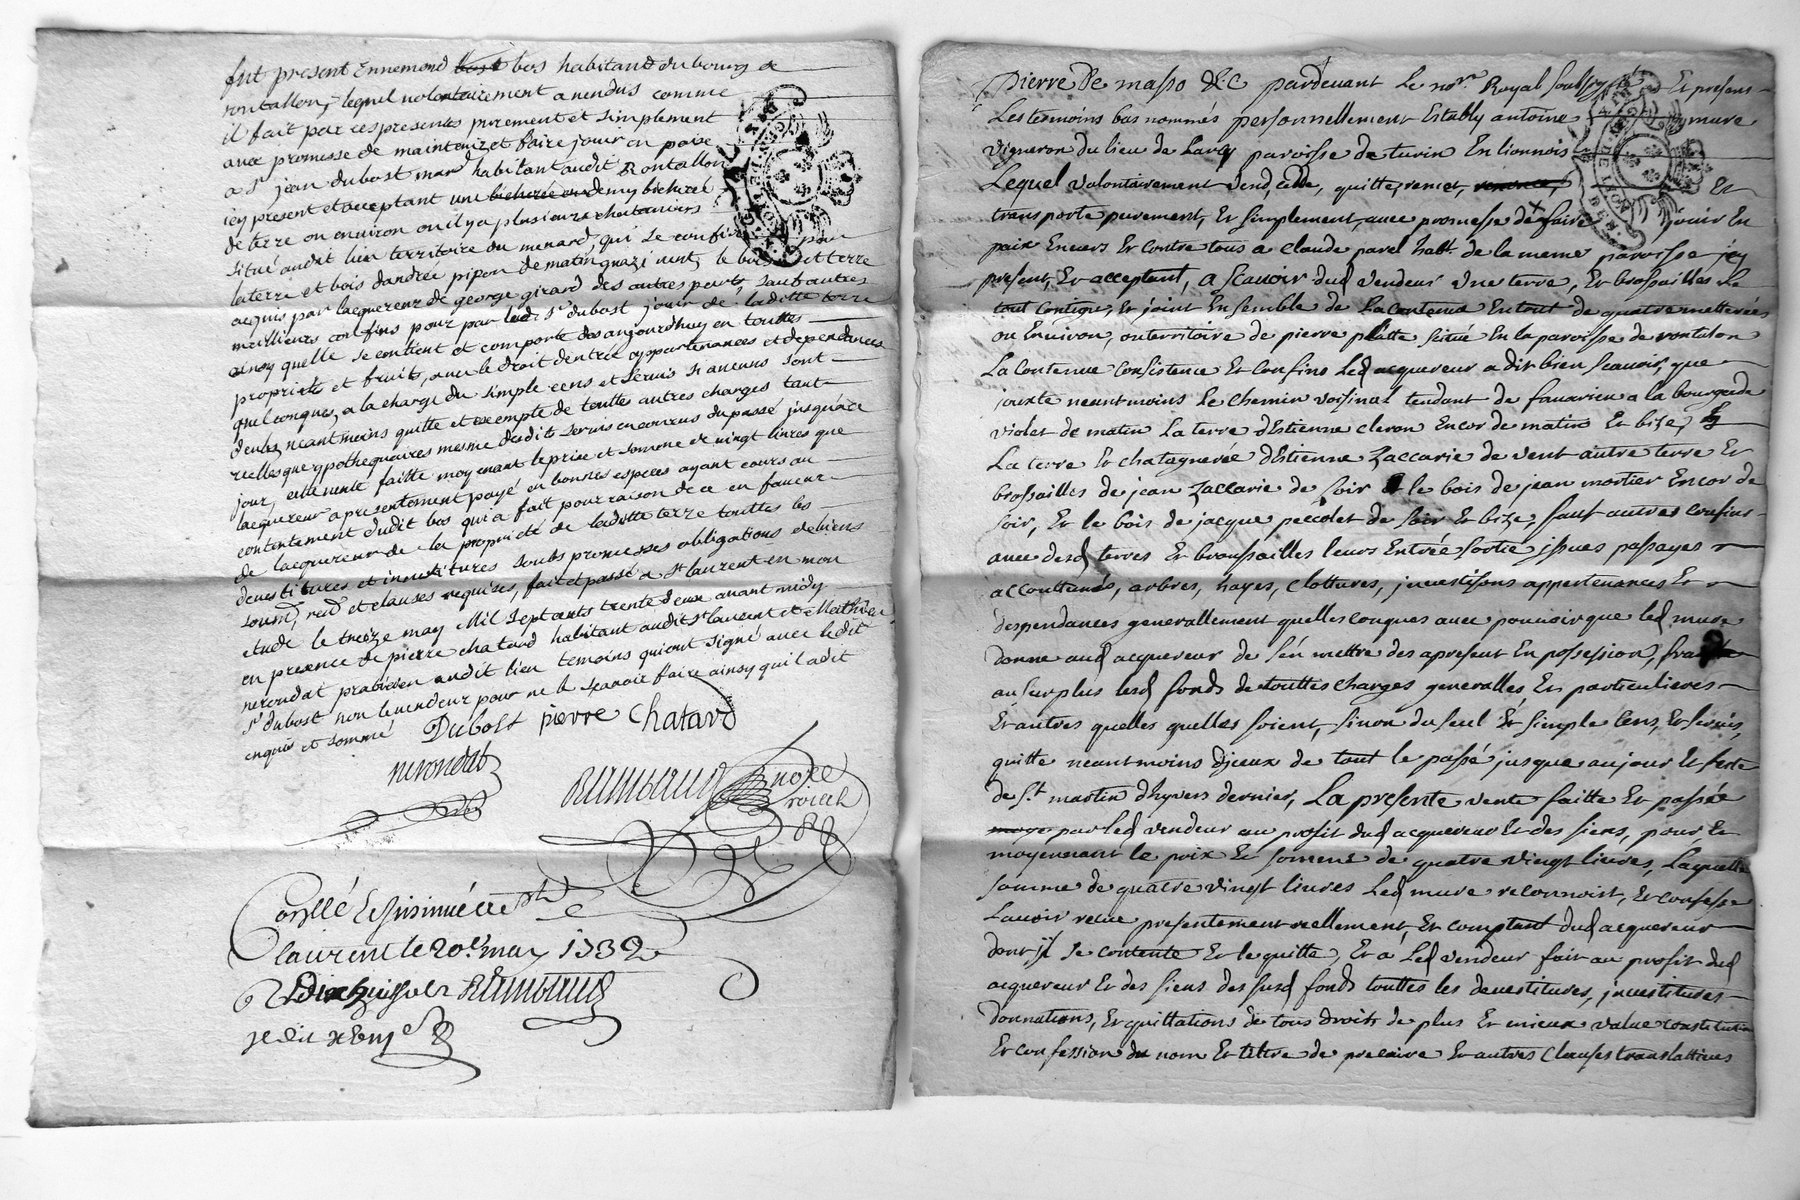 fut present Ennemond bos habitand du bourg de
rontallon, lequel volontairement a vendus comme
il fait par ces presentes purement et simplement
avec promesse de maintenir et faire jouir en paix
a Sr jean dubost mard habitant audit Rontallon
icy present et acceptant une bicherée ou demy bicherée
de terre ou environ ou il y a plusieurs chataniers
situé audit lieu territoire du menard, qui se confine par
la terre et bois dandrée pipon de matin, vent, le bois et terre
acquis par lacquereur de george girard des autres parts, sauf autres
meillieurs confins pour par ledt Sr dubost jouir de laditte terre
ainsy quelle se contient et comporte des aujourdhuy en touttes
proprietés et fruits, avec le droit dentrée appartenances et dependances
quelconques, a la charge du simple cens et servis si aucuns sont
deubs, neantmoins quitte et exempte de touttes autres charges tant
reelles que ypothequaires mesme dudit servis en arrerus du passé jusqu'a ce
jour, cette vente faitte moyenant le prix et somme de vingt livres que
lacquereur a presentement payé en bonnes especes ayant cours au
contentement dudit bos qui a fait pour raison de ce en faveur
de lacquereur de la propriété de laditte terre touttes les
devestitures et investitures soubs promesses obligations de biens
soumn, rend et clauses requises, fait et passé a St laurent en mon
etude le treize may Mil sept cents trente deux avant midy
en presence de pierre chatard habitant audit St laurent et Mathieu
nerondat praticien audit lieu temoins qui ont signé avec ledit
Sr dubost non le vendeur pour ne le scavoir faire ainsy qu'il a dit
enquis et sommé Dubost pierre Chatard
nerondat
Rambaud nore
royal
Corllé et insinué a St
laurent le 20e may 1732
Rambaud
Pierre De masso &c pardevant Le nore Royal soubsigné Et presens
Les tesmoins bas nommés personnellement Estably antoine mure
vigneron du lieu de Larly paroisse de turin En lionnois
Lequel volontairement vend, cedde, quitte, remet, Et
transporte purement, Et simplement, avec promesse de faire jouir En
paix Envers Et Contre tous a Claude pavel habt de la meme paroisse jcy
present, Et acceptant, a scavoir dud vendeur Une terre, Et brossailles Le
tout Contigue, Et joint Ensemble de La Contenue En tout de quatre metterées
ou Environ, au territoire de pierre platte scitué En la paroisse de rontalon
La Contenue Consistence Et Confins Led acquereur a dit bien scavoir, que
jouxte neantmoins Le chemin voisinal tendant de favarieu a la bourgade
violet de matin La terre d'Estienne cleron Encor de matin Et bize,
La terre Et chatagnerée d'Estienne Zaccarie de vent autre terre Et
brossailles de jean Zaccarie de soir le bois de jean mortier Encor de
soir, Et le bois de jacque peccolet de soir Et bize, sauf autres confins
avec desd terres Et broussailles leurs Entrée sortie jssues passages
accoutumés, arbres, hayes, clottures, jnvestisons appertenances Et
despendances generallement quelles conques avec pouvoir que led mure
donne aud acquereur de s'en mettre des apresent En possession,
au surplus lesd fonds de touttes charges generalles Et particulieres
Et autres quelles quelles soient, sinon du seul Et simple Cens, Et servis,
quitte neantmoins djceux de tout le passé jusque au jour Et feste
de St martin d'hyvers dernier, La presente vente faitte Et passée
par led vendeur au profit dud acquereur Et des siens, pour Et
moyennant le prix Et somme de quatre vingt livres, Laquelle
somme de quatre vingt livres Led mure reconnoist, Et confesse
Lavoir receu presentement reellement, Et comptant dud acquereur
dont jl se contente Et le quitte, Et a Led vendeur fait au profit dud
acquereur Et des siens des susd fonds touttes les devestitures, jnvestitures
donnations, Et quittations de tous droits de plus Et mieux value constitution
Et confession du nom Et tiltre de precaire Et autres Clauses translattives